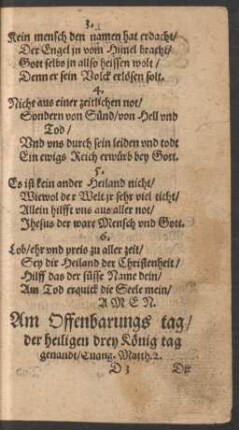 3.
Kein mensch den namen hat erdacht/
Der Engel jn vom Himel bracht/
Gott selbs jn allso heissen wolt/
Denn er sein Volck erlösen solt.
4.
Nicht aus einer zeitlichen not/
Sondern von Sünd/von Hell vnd
Tod/
Vnd vns durch sein leiden vnd todt
Ein ewigs Reich erwürb bey Gott.
5.
Es ist kein ander Heiland nicht/
Wiewol der Welt jr sehr viel ticht/
Allein hilfft vns aus aller not/
Jhesus der ware Mensch vnd Gott.
6.
Lob/ehr vnd preis zu aller zeit/
Sey dir Heiland der Christenheit/
Hilff das der süsse Name dein/
Am Tod erquick die Seele mein/
A M E N.
Am Offenbarungs tag/
der heiligen drey König tag
genandt/Euang. Matth. 2.
D 3